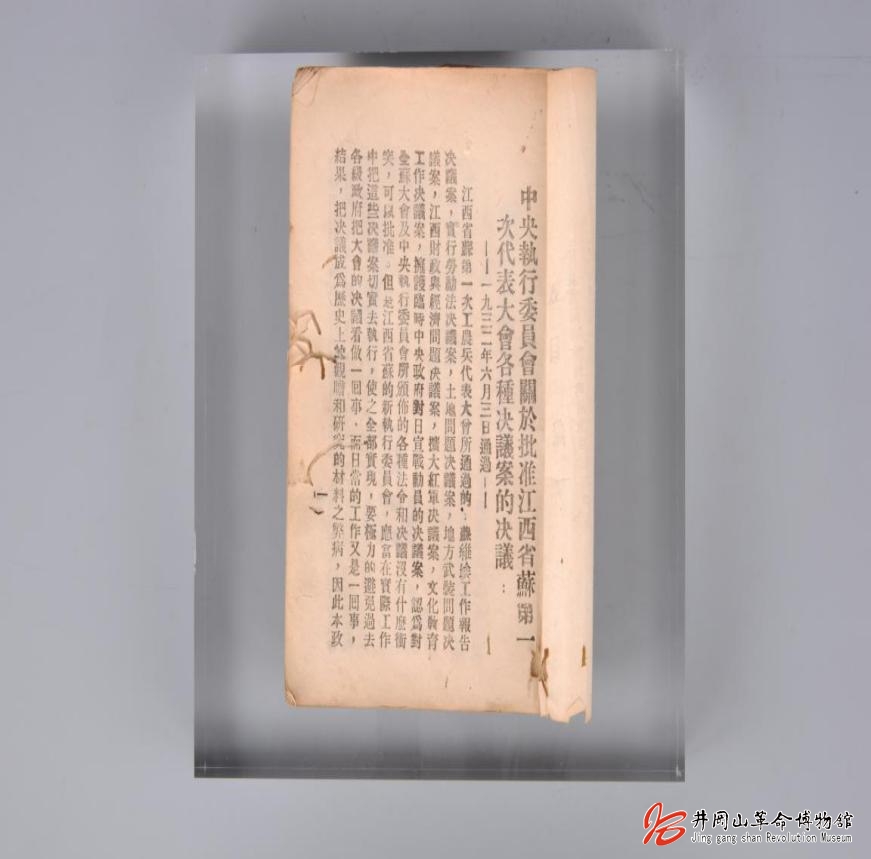 中央執行委員會關於批准江西省蘇第一
次代表大會各種決議案的決議：
——一九三二年六月三日通過——
江西省蘇第一次工農兵代表大會所通過的：蘇維埃工作報告
決議案，實行勞動法決議案，土地問題決議案，地方武裝問題決
議案，江西財政與經濟問題決議案，擴大紅軍決議案，文化教育
工作決議案，擁護臨時中央政府對日宣戰動員的決議案，認為對
全蘇大會及中央執行委員會所頒佈的各種法令和決議沒有什麽衝
突，可以批准。但是江西省蘇的新執行委員會，應當在實際工作
中把這些決議案切實去執行，使之全部實現，要極力的避免過去
各級政府把大會的決議看做一回事，而日常的工作又是一回事，
結果，把決議成爲歷史上的觀瞻和研究的材料之弊病，因此本政
（一）
井岡山革命博物館
Jing gang shan Revolution Museum